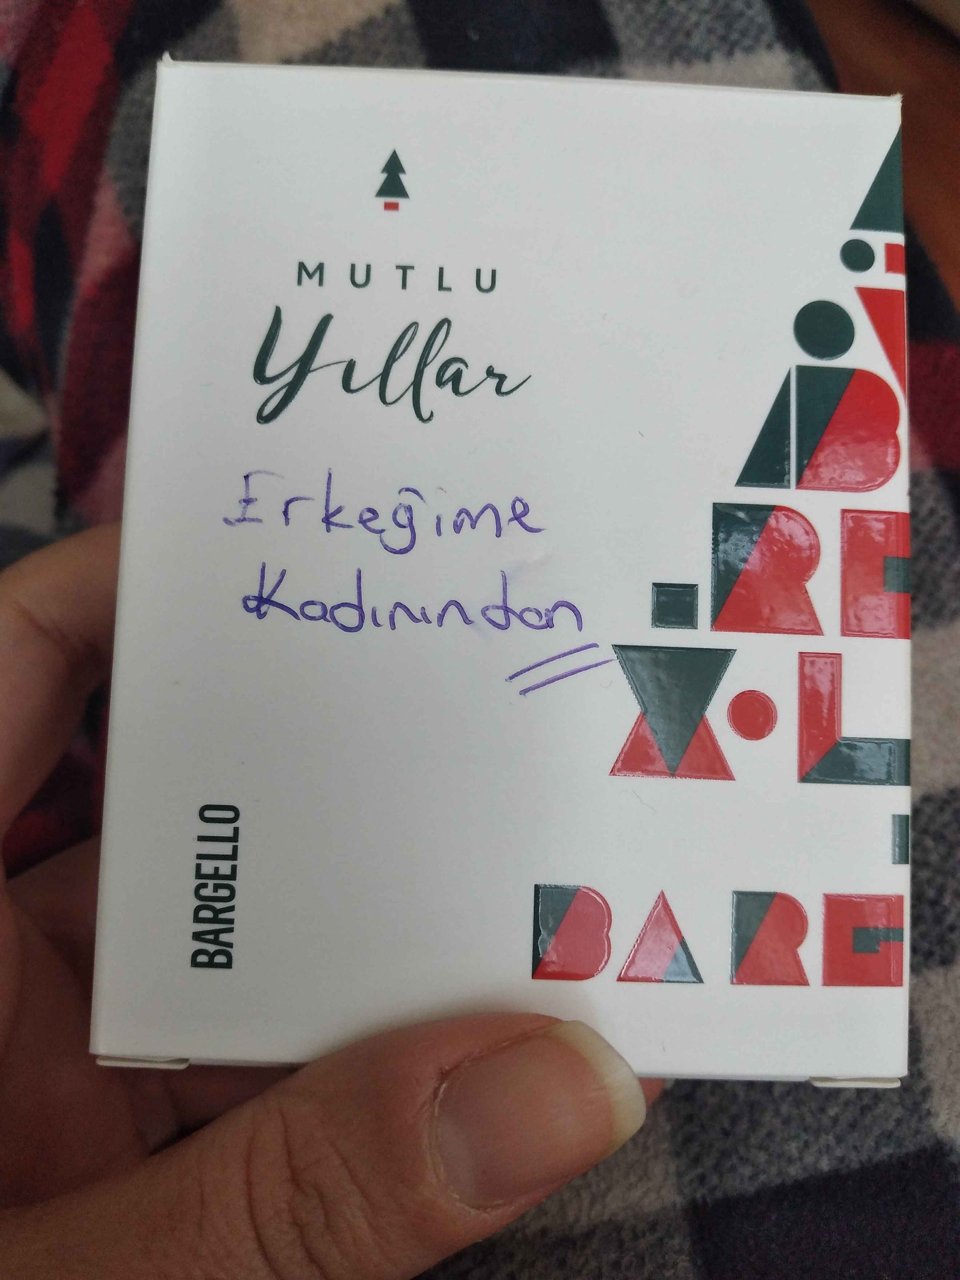 MUTLU
Yıllar
Erkeğime
Kadınından
BARGELLO
B
RE
L
BARG